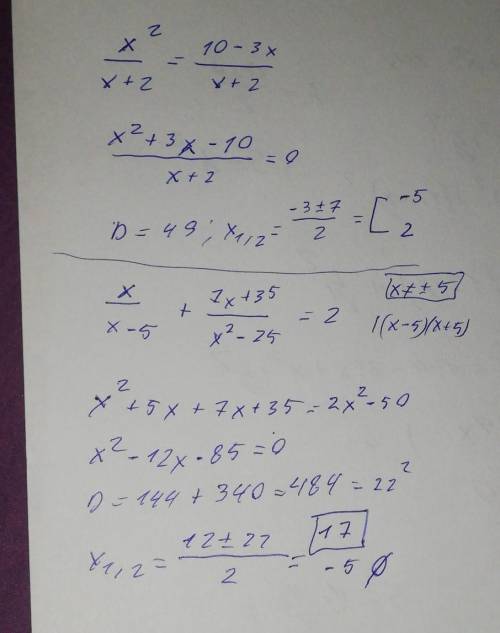 x²/(x+2) = (10-3x)/(x+2)
(x²+3x-10)/(x+2) = 0
D = 49; x₁,₂ = (-3±7)/2 = [ -5 2
x/(x-5) + (7x+35)/(x²-25) = 2 x≠±5 |(x-5)(x+5)
x²+5x+7x+35=2x²-50
x²-12x-85=0
D=144+340=484=22²
x₁,₂ = (12±22)/2 = 17 -5 ∅